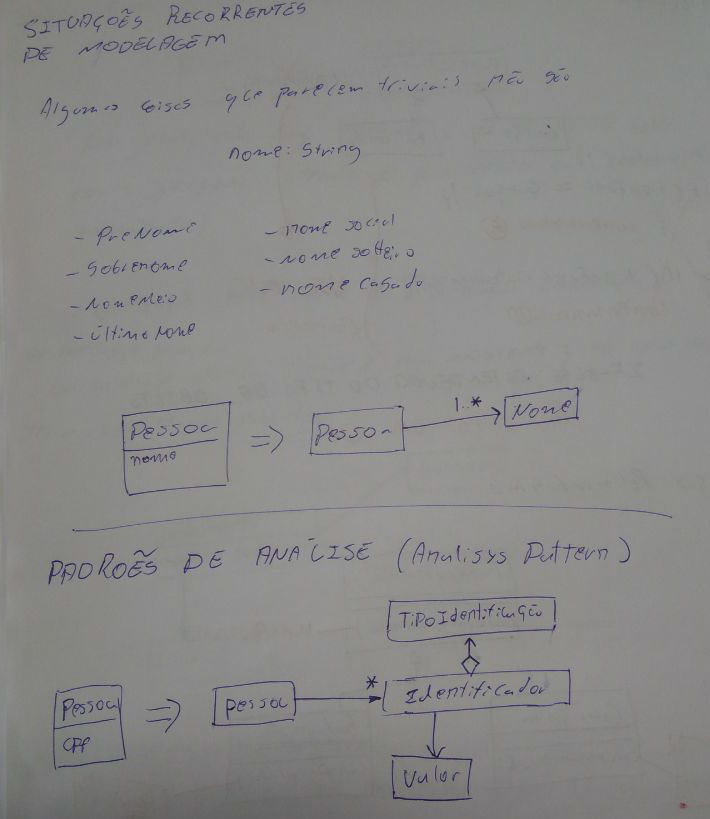 SITUAÇÕES RECORRENTES
DE MODELAGEM
Algumas coisas que parecem triviais não são
nome: String
- PreNome
- Sobrenome
- NomeMeio
- Último Nome
- nome social
- nome solteiro
- nome casado
Pessoa
nome
=>
Pessoa
1..*
Nome
PADRÕES DE ANÁLISE (Analisys Pattern)
TipoIdentificação
Pessoa
CPF
=>
pessoa
*
Identificador
Valor